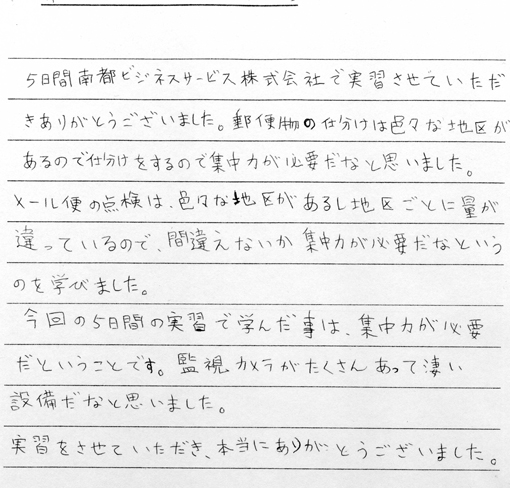 5日間南都ビジネスサービス株式会社で実習させていただ
きありがとうございました。郵便物の仕分けは色々な地区が
あるので仕分けをするので集中力が必要だなと思いました。
メール便の点検は、色々な地区があるし地区ごとに量が
違っているので、間違えないか集中力が必要だなという
のを学びました。
今回の5日間の実習で学んだ事は、集中力が必要
だということです。監視カメラがたくさんあって凄い
設備だなと思いました。
実習をさせていただき、本当にありがとうございました。